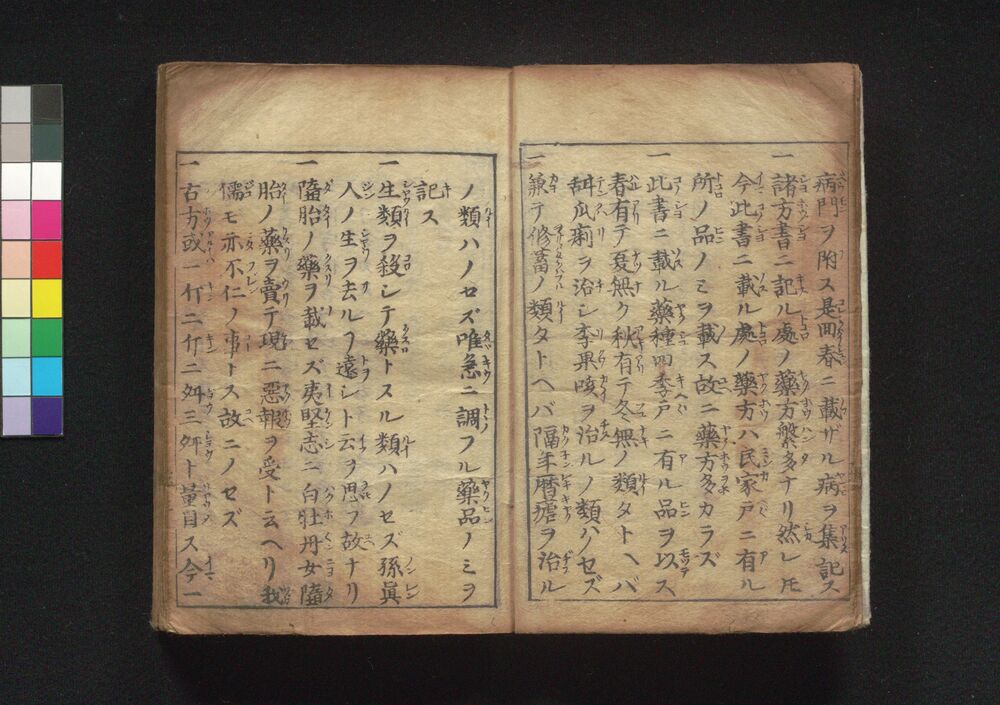 病門ヲ附ス是回春ニ載ザル病ヲ集記ス
一諸方書ニ記ル處ノ藥方繁多ナリ然レ𪜈
今此書ニ載ル處ノ藥方ハ民家戸ニ有ル
所ノ品ノミヲ載ス故ニ藥方多カラズ
一此書ニ載ル藥種四季戸ニ有ル品ヲ以ス
春有テ夏無ク秋有テ冬無ノ類タトヘバ
糾瓜痢ヲ治シ李果咳ヲ治ルノ類ハノセズ
一兼テ修蓄ノ類タトヘバ隔年暦瘧ヲ治ル
ノ類ハノセズ唯急ニ調フル藥品ノミヲ
記ス
一生類ヲ殺シテ藥トスル類ハノセズ孫眞
人ノ生ヲ去ルフ遠シト云ヲ思フ故ナリ
一墮胎ノ藥ヲ載セズ夷堅志ニ白牡丹女墮
胎ノ藥ヲ賣テ現ニ惡報ヲ受ト云ヘリ我
儒モ亦不仁ノ事トス故ニノセズ
一古方或一斤二斤二舛三舛ト量目ス今一